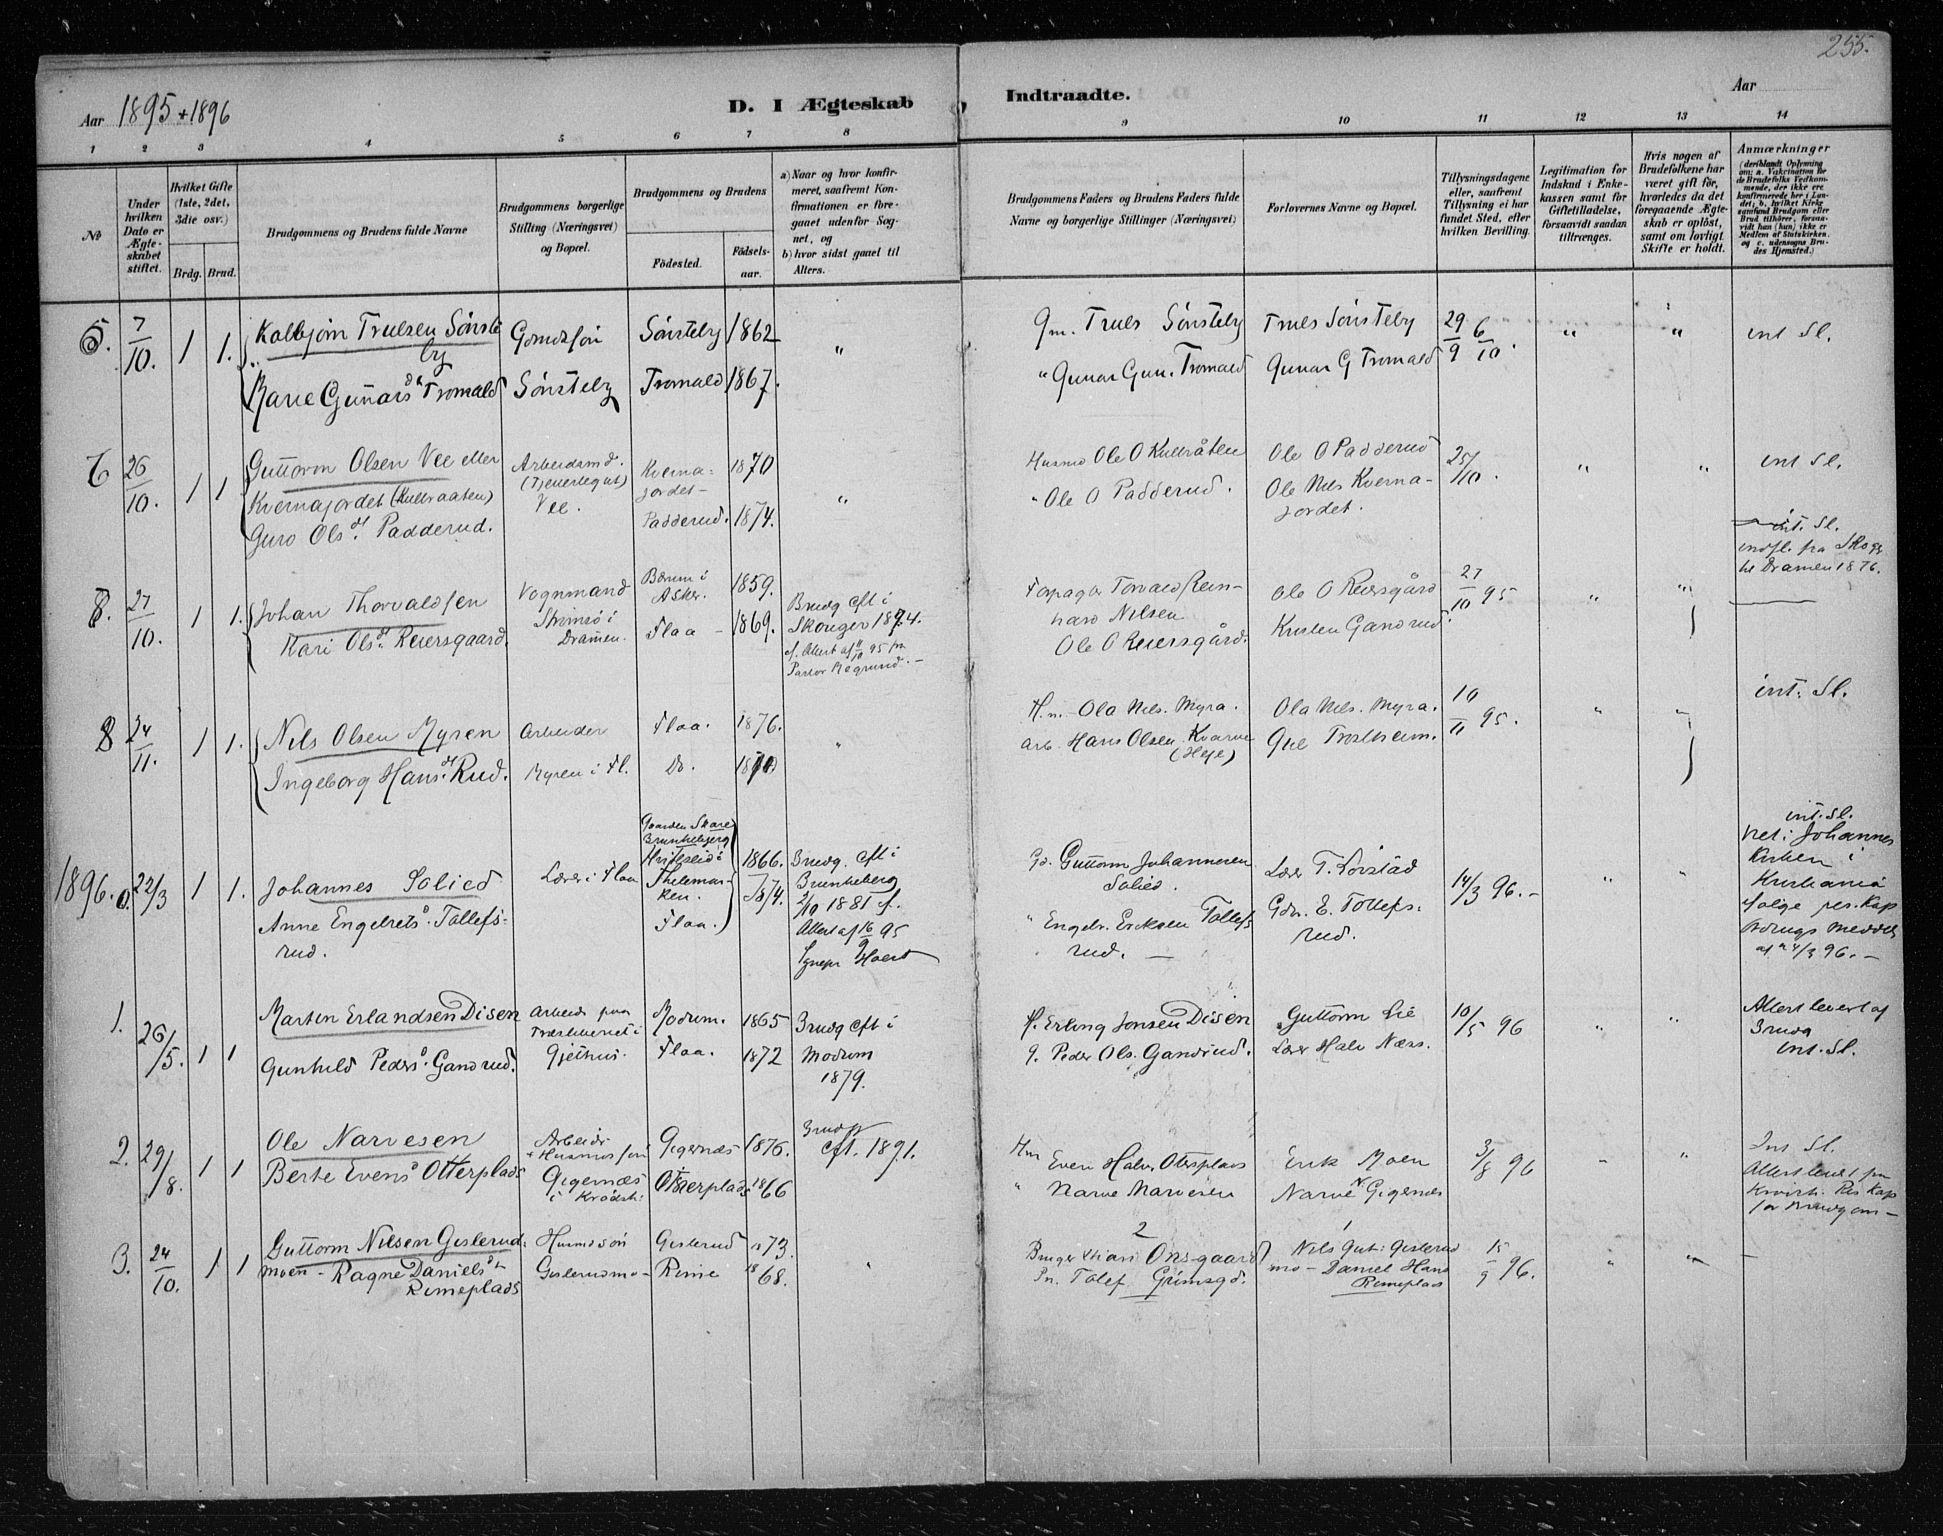 255.
Aar 1895 + 1896
D. I Ægteskab
Indtraadte.
Aar
1 2 3 4 5 6 7 8
9 10 11 12 13 14
No
Under hvilken Dato er Ægteskabet stiftet.
Hvilket Gifte (1ste, 2det, 3die osv.)
Brdg. Brud.
Brudgommens og Brudens fulde Navne
Brudgommens borgerlige Stilling (Næringsvei) og Bopæl.
Brudgommens og Brudens
Fødested.
Fødselsaar.
a) Naar og hvor konfirmeret, saafremt Konfirmationen er foregaaet udenfor Sognet, og
b) hvor sidst gaael til Alters.
Brudgommens Faders og Brudens Faders fulde Navne og borgerlige Stillinger (Næringsvei)
Forlovernes Navne og Bopæl.
Tillysningsdagene eller, saafremt Tillysning ei har fundet Sted, efter hvilken Bevilling.
Legitimation for Indskud i Enkekassen samt for Giftetilladelse, forsaavidt saadan tiltrænges.
Hvis nogen af Brudefolkene har været gift før, hvorledes da det foregaaende Ægteskab er opløst, samt om lovligt Skifte er holdt.
Anmærkninger
(deriblandt Oplysning om: a. Vakcination for de Brudefolks Vedkommende, der ikke ere konfirmerede her i Landet; b. hvilket Kirkesamfund Brudgom eller Brud tilhører, forsaavidt han (hun) ikke er Medlem af Statskirken, og c. udensogns Brudes Hjemsted.)
5. 7/10. 1 1. Kolbjørn Truelsen Sönsteby Gmdssön Sönsteby 1862 "
Marie Gunnarsd. Tromald Sönsteby Tromald 1867.
Gm. Truels Sönsteby Truls Sönsteby 29/9 6/10. " " int Sl.
" Gunar Gun. Tromald Gunar G Tromald
6 26/10. 1 1 Guttorm Olsen Vee eller Arbeidsmd. Kverna- 1870
Kvernajordet (Kullraaten) (Tjenerlegat) jordet- "
Guro Ols.d Padderud. Vee. Padderud. 1874.
Husmd Ole O Kullråten Ole O Padderud 25/10. " " int Sl.
" Ole O Padderud. Ole Nils Kvernajordet.
7. 27/10. 1 1. Johan Thorvaldsen Vognmand Bærum i Asker. 1859. Brudg cft i
Kari Ols.d Reiersgaard. Strømsö i Dramen. Flaa - 1869. Skouger 1874.
cf. Attest af 11/10 95 fra
Pastor Rogrund. -
Forpagter Torvald Reinhard Nilsen Ole O Reiersgård 27/10 95 " "
Ole O Reiersgård. Kristen Gandrud.
int. Sl.
indfl. fra Skoger
til Dramen 1876.
8 24/11. 1 1. Nils Olsen Myren Arbeider Flaa. 1876. "
Ingeborg Hans.d Rud. Myren i Fl. Do. 1870
H.m. Ola Nils. Myra. Ola Nils. Myra. 10/11 95. " " int. Sl.
Arb. Hans Olsen Kvarne (Heje) Gul Trostheim.
1896. 22/3 1 1. Johannes Solied Lærer i Flaa Gaarden Skare 1866. Brudg. cft i
Anne Engebrets.d Tollefsrud. Brunkebjerg Hviteseid i Thelemarken. Flaa. 1874. Brunkeberg
2/10 1881 cf.
Attest af 16/9 95
Sgnepr Hoerst
Gd. Guttorm Johannesen Solied. Lærer T. Lövstad 14/3 96. - " "
" Engebr. Ericksen Tollefsrud. - Gdr. E. Tollefsrud.
int. Sl.
viet i Johannes
Kirken i
Kristiania
ifølge pers. Kap
Ödrugs meddel
af 24/3 96. -
1. 26/5. 1 1 Martin Erlandsen Disen Arbeider paa Modum. 1865 Brudg cft i
Gunhild Peders.d Gandrud. Træsliberiet i Gjethus. Flaa. 1872 Modum
1879.
F. Erling Jonsen Disen Guttorm Lie 10/5 96 " "
G. Peder Ols. Gandrud. Lærer Halv Næss.
Attest levert af
Brudg
int. Sl.
2. 29/8. 1 1 Ole Narvesen Arbeider Gigernæs 1876. Brudg
Berte Evens.d Otterplads + Husmdssön Otterplads 1866 cft. 1891.
Gigernæs i Krödsh.
Hm Even Halv. Oterplads Erik Moen 3/8 96 " " Int Sl.
" Narve Narvesen Narve N. Gigernæs
Attest levert fra
Krödsh. Res Kap
for Brudgom -
3. 24/10. 1 1 Guttorm Nilsen Gislerud- Husmdssön Gislerud 1873. "
moen - Ragne Daniels.d Rimeplads Gislerudmo- Rime 1868.
2 1
Bruger Kristian Onsgaard Nils Gut. Gislerud 15/9 96. " " -
Pn. Tolef Grimsgd. mo - Daniel Hans Rimeplads